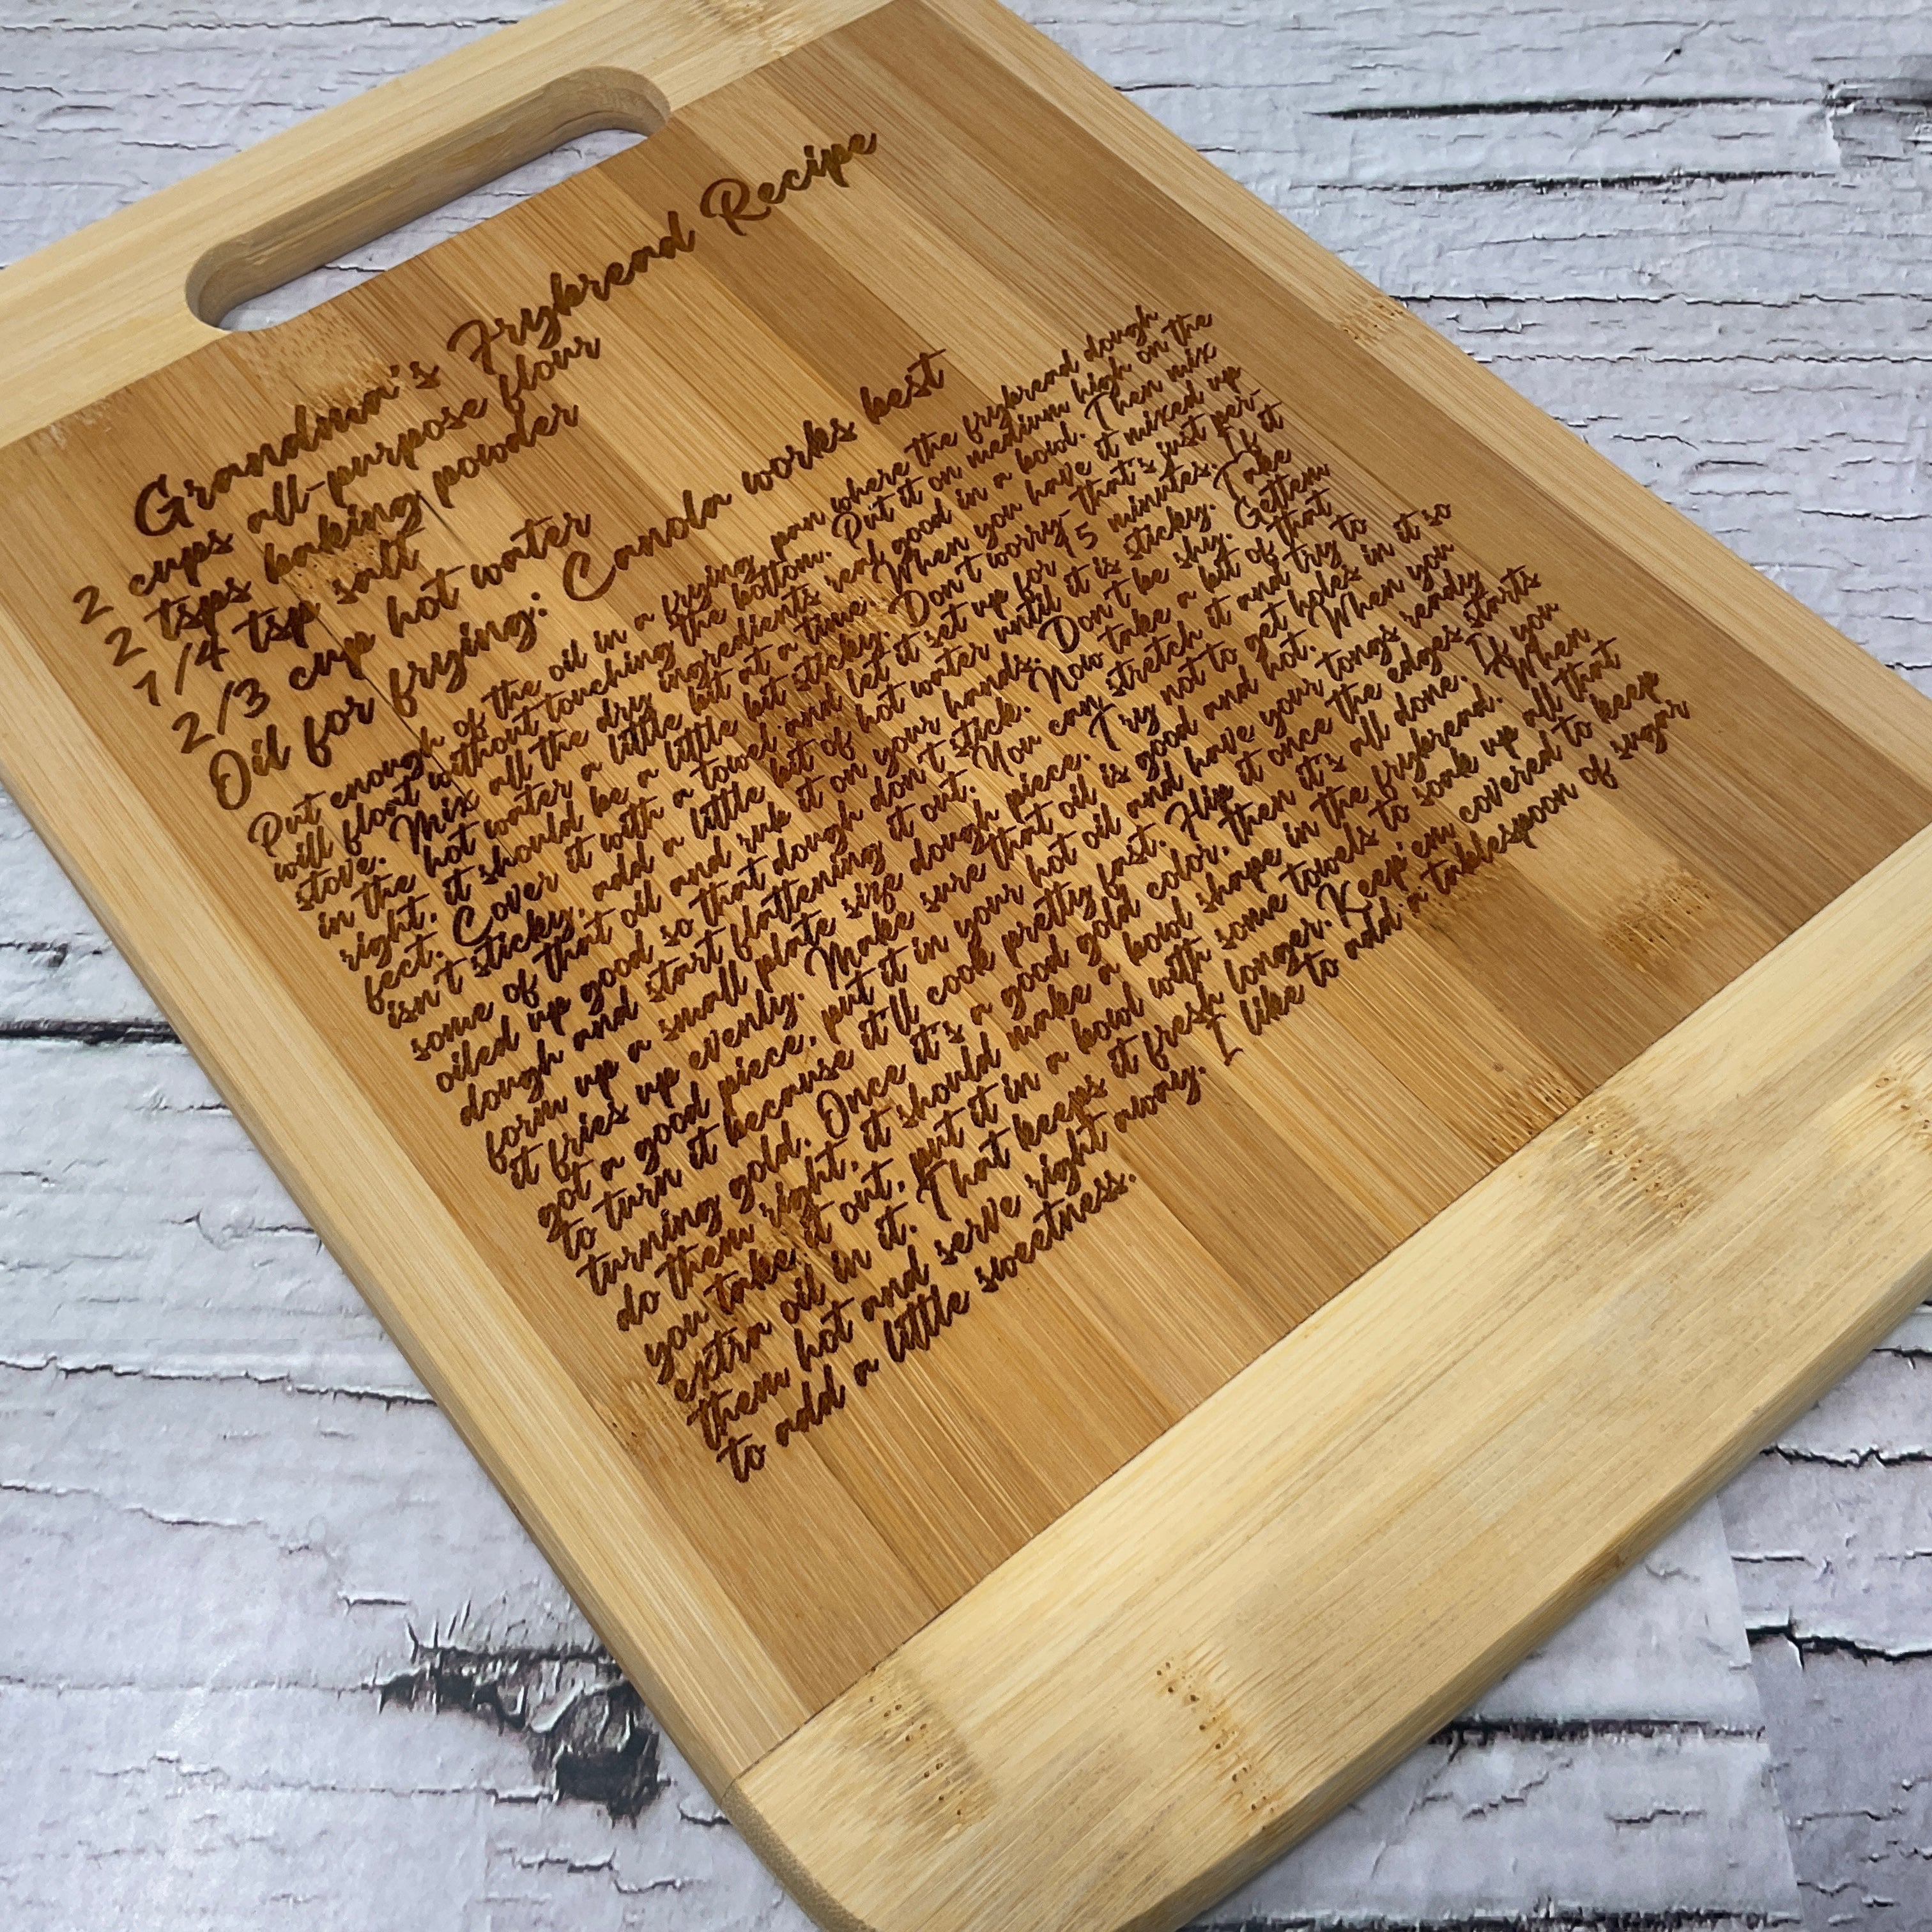 Grandma's Frybread Recipe
2 cups all-purpose flour
2 tsps baking powder
1/4 tsp salt
2/3 cup hot water
Oil for frying: Canola works best
Put enough of the oil in a frying pan where the frybread dough
will float without touching the bottom. Put it on medium high on the
stove. Mix all the dry ingredients real good in a bowl. Then mix
in the hot water a little bit at a time. When you have it mixed up
right, it should be a little bit sticky. Don't worry-that's just per-
fect. Cover it with a towel and let it set up for 15 minutes. If it
isn't sticky, add a little bit of hot water until it is sticky. Take
some of that oil and rub it on your hands. Don't be shy. Gettem
oiled up good so that dough don't stick. Now take a bit of that
dough and start flattening it out. You can stretch it and try to
form up a small plate size dough piece. Try not to get holes in it so
it fries up evenly. Make sure that oil is good and hot. When you
got a good piece, put it in your hot oil and have your tongs ready
to turn it because it'll cook pretty fast. Flip it once the edges starts
turning gold. Once it's a good gold color, then it's all done. If you
do them right, it should make a bowl shape in the frybread. When
you take it out, put it in a bowl with some towels to soak up all that
extra oil in it. That keeps it fresh longer. Keep'em covered to keep
them hot and serve right away. I like to add a tablespoon of sugar
to add a little sweetness.